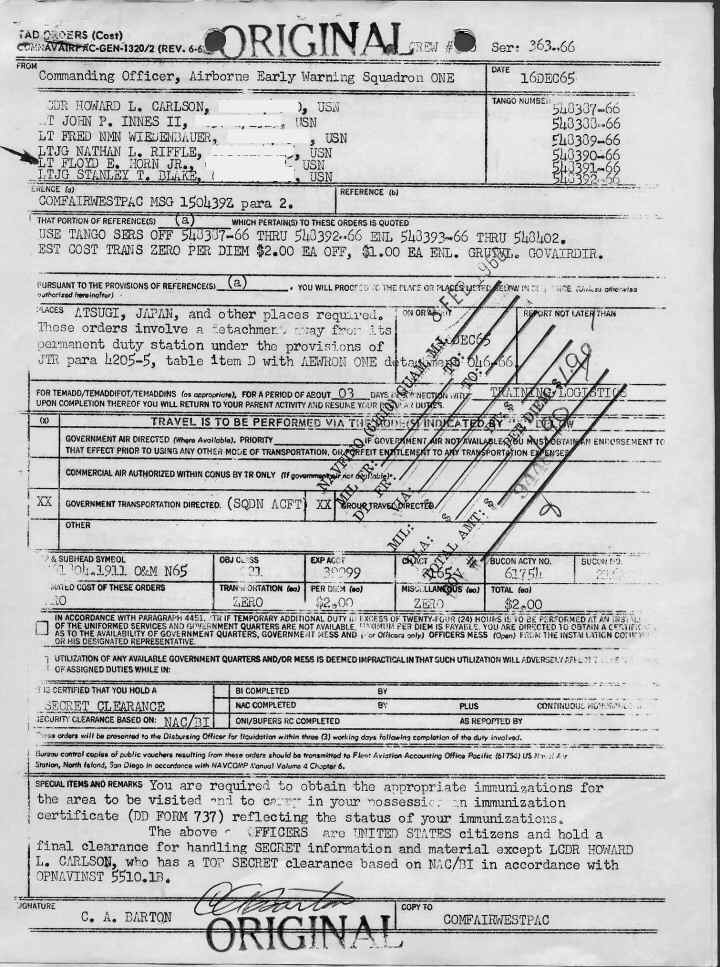 TAD ORDERS (Cost)
COMNAVAIRPAC-GEN-1320/2 (REV. 6-6
ORIGINAL
CREW #
Ser: 363..66
FROM
Commanding Officer, Airborne Early Warning Squadron ONE
DATE
16DEC65
CDR HOWARD L. CARLSON, ), USN
LT JOHN P. INNES II, USN
LT FRED NMN WIEDENBAUER, , USN
LTJG NATHAN L. RIFFLE, USN
LT FLOYD E. HORN JR., ( USN
LTJG STANLEY T. BLAKE, ( , USN
TANGO NUMBER
548387-66
548388-66
548389-66
548390-66
548391-66
548392-66
ERENCE (a)
COMFAIRWESTPAC MSG 150439Z para 2.
REFERENCE (b)
THAT PORTION OF REFERENCE(S) (a) WHICH PERTAIN(S) TO THESE ORDERS IS QUOTED
USE TANGO SERS OFF 548387-66 THRU 548392-66 ENL 548393-66 THRU 548402.
EST COST TRANS ZERO PER DIEM $2.00 EA OFF, $1.00 EA ENL. GRUTVL. GOVAIRDIR.
PURSUANT TO THE PROVISIONS OF REFERENCE(S) (a) , YOU WILL PROCEED TO THE PLACE OR PLACES LISTED BELOW IN (Unless otherwise
authorized hereinafter)
PLACES ATSUGI, JAPAN, and other places required.
These orders involve a detachment away from its
permanent duty station under the provisions of
JTR para 4205-5, table item D with AEWRON ONE detachment 046-66
ON OR ABOUT
DEC65
REPORT NOT LATER THAN
8 FEB 1966
NAVFINO (CODE) GUAM, M.I.
MIL FR: TO:
DP FR: TO:
VIA:
MIL: $
DLA: $ PER DIEM: $
TOTAL AMT: $
DOV #
FOR TEMADD/TEMADDIFOT/TEMADDINS (as appropriate), FOR A PERIOD OF ABOUT 03 DAYS IN CONNECTION WITH TRAINING LOGISTICS
UPON COMPLETION THEREOF YOU WILL RETURN TO YOUR PARENT ACTIVITY AND RESUME YOUR REGULAR DUTIES.
(X) TRAVEL IS TO BE PERFORMED VIA THE MODE(S) INDICATED BY BELOW
GOVERNMENT AIR DIRECTED (Where Available). PRIORITY IF GOVERNMENT AIR NOT AVAILABLE YOU MUST OBTAIN AN ENDORSEMENT TO
THAT EFFECT PRIOR TO USING ANY OTHER MODE OF TRANSPORTATION, OR FORFEIT ENTITLEMENT TO ANY TRANSPORTATION EXPENSES
COMMERCIAL AIR AUTHORIZED WITHIN CONUS BY TR ONLY (If government air not available).
XX GOVERNMENT TRANSPORTATION DIRECTED. (SQDN ACFT) XX GROUP TRAVEL DIRECTED
OTHER
& SUBHEAD SYMBOL
.1911 O&M N65
OBJ CLASS
21
EXP ACCT
30099
CH ACT
BUCON ACTY NO.
61754
BUCON NO.
MATED COST OF THESE ORDERS
RO
TRANSPORTATION (ea)
ZERO
PER DIEM (ea)
$2.00
MISCELLANEOUS (ea)
ZERO
TOTAL (ea)
$2.00
IN ACCORDANCE WITH PARAGRAPH 4451, JTR IF TEMPORARY ADDITIONAL DUTY IN EXCESS OF TWENTY-FOUR (24) HOURS IS TO BE PERFORMED AT AN INSTAL
OF THE UNIFORMED SERVICES AND GOVERNMENT QUARTERS ARE NOT AVAILABLE MAXIMUM PER DIEM IS PAYABLE. YOU ARE DIRECTED TO OBTAIN A CERTIFIC
AS TO THE AVAILABILITY OF GOVERNMENT QUARTERS, GOVERNMENT MESS AND (For Officers only) OFFICERS MESS (Open) FROM THE INSTALLATION COMM
OR HIS DESIGNATED REPRESENTATIVE.
UTILIZATION OF ANY AVAILABLE GOVERNMENT QUARTERS AND/OR MESS IS DEEMED IMPRACTICAL IN THAT SUCH UTILIZATION WILL ADVERSELY AFFECT
OF ASSIGNED DUTIES WHILE IN:
IS CERTIFIED THAT YOU HOLD A
SECRET CLEARANCE
ECURITY CLEARANCE BASED ON: NAC/BI
BI COMPLETED BY
NAC COMPLETED BY PLUS CONTINUOUS
ONI/BUPERS RC COMPLETED AS REPORTED BY
These orders will be presented to the Disbursing Officer for liquidation within three (3) working days following completion of the duty involved.
Bureau control copies of public vouchers resulting from these orders should be transmitted to Fleet Aviation Accounting Office Pacific (61754) US Naval Air
Station, North Island, San Diego in accordance with NAVCOMP Manual Volume 4 Chapter 6.
SPECIAL ITEMS AND REMARKS You are required to obtain the appropriate immunizations for
the area to be visited and to carry in your possession an immunization
certificate (DD FORM 737) reflecting the status of your immunizations.
The above OFFICERS are UNITED STATES citizens and hold a
final clearance for handling SECRET information and material except LCDR HOWARD
L. CARLSON, who has a TOP SECRET clearance based on NAC/BI in accordance with
OPNAVINST 5510.1B.
SIGNATURE
C. A. BARTON
C A Barton
COPY TO
COMFAIRWESTPAC
ORIGINAL